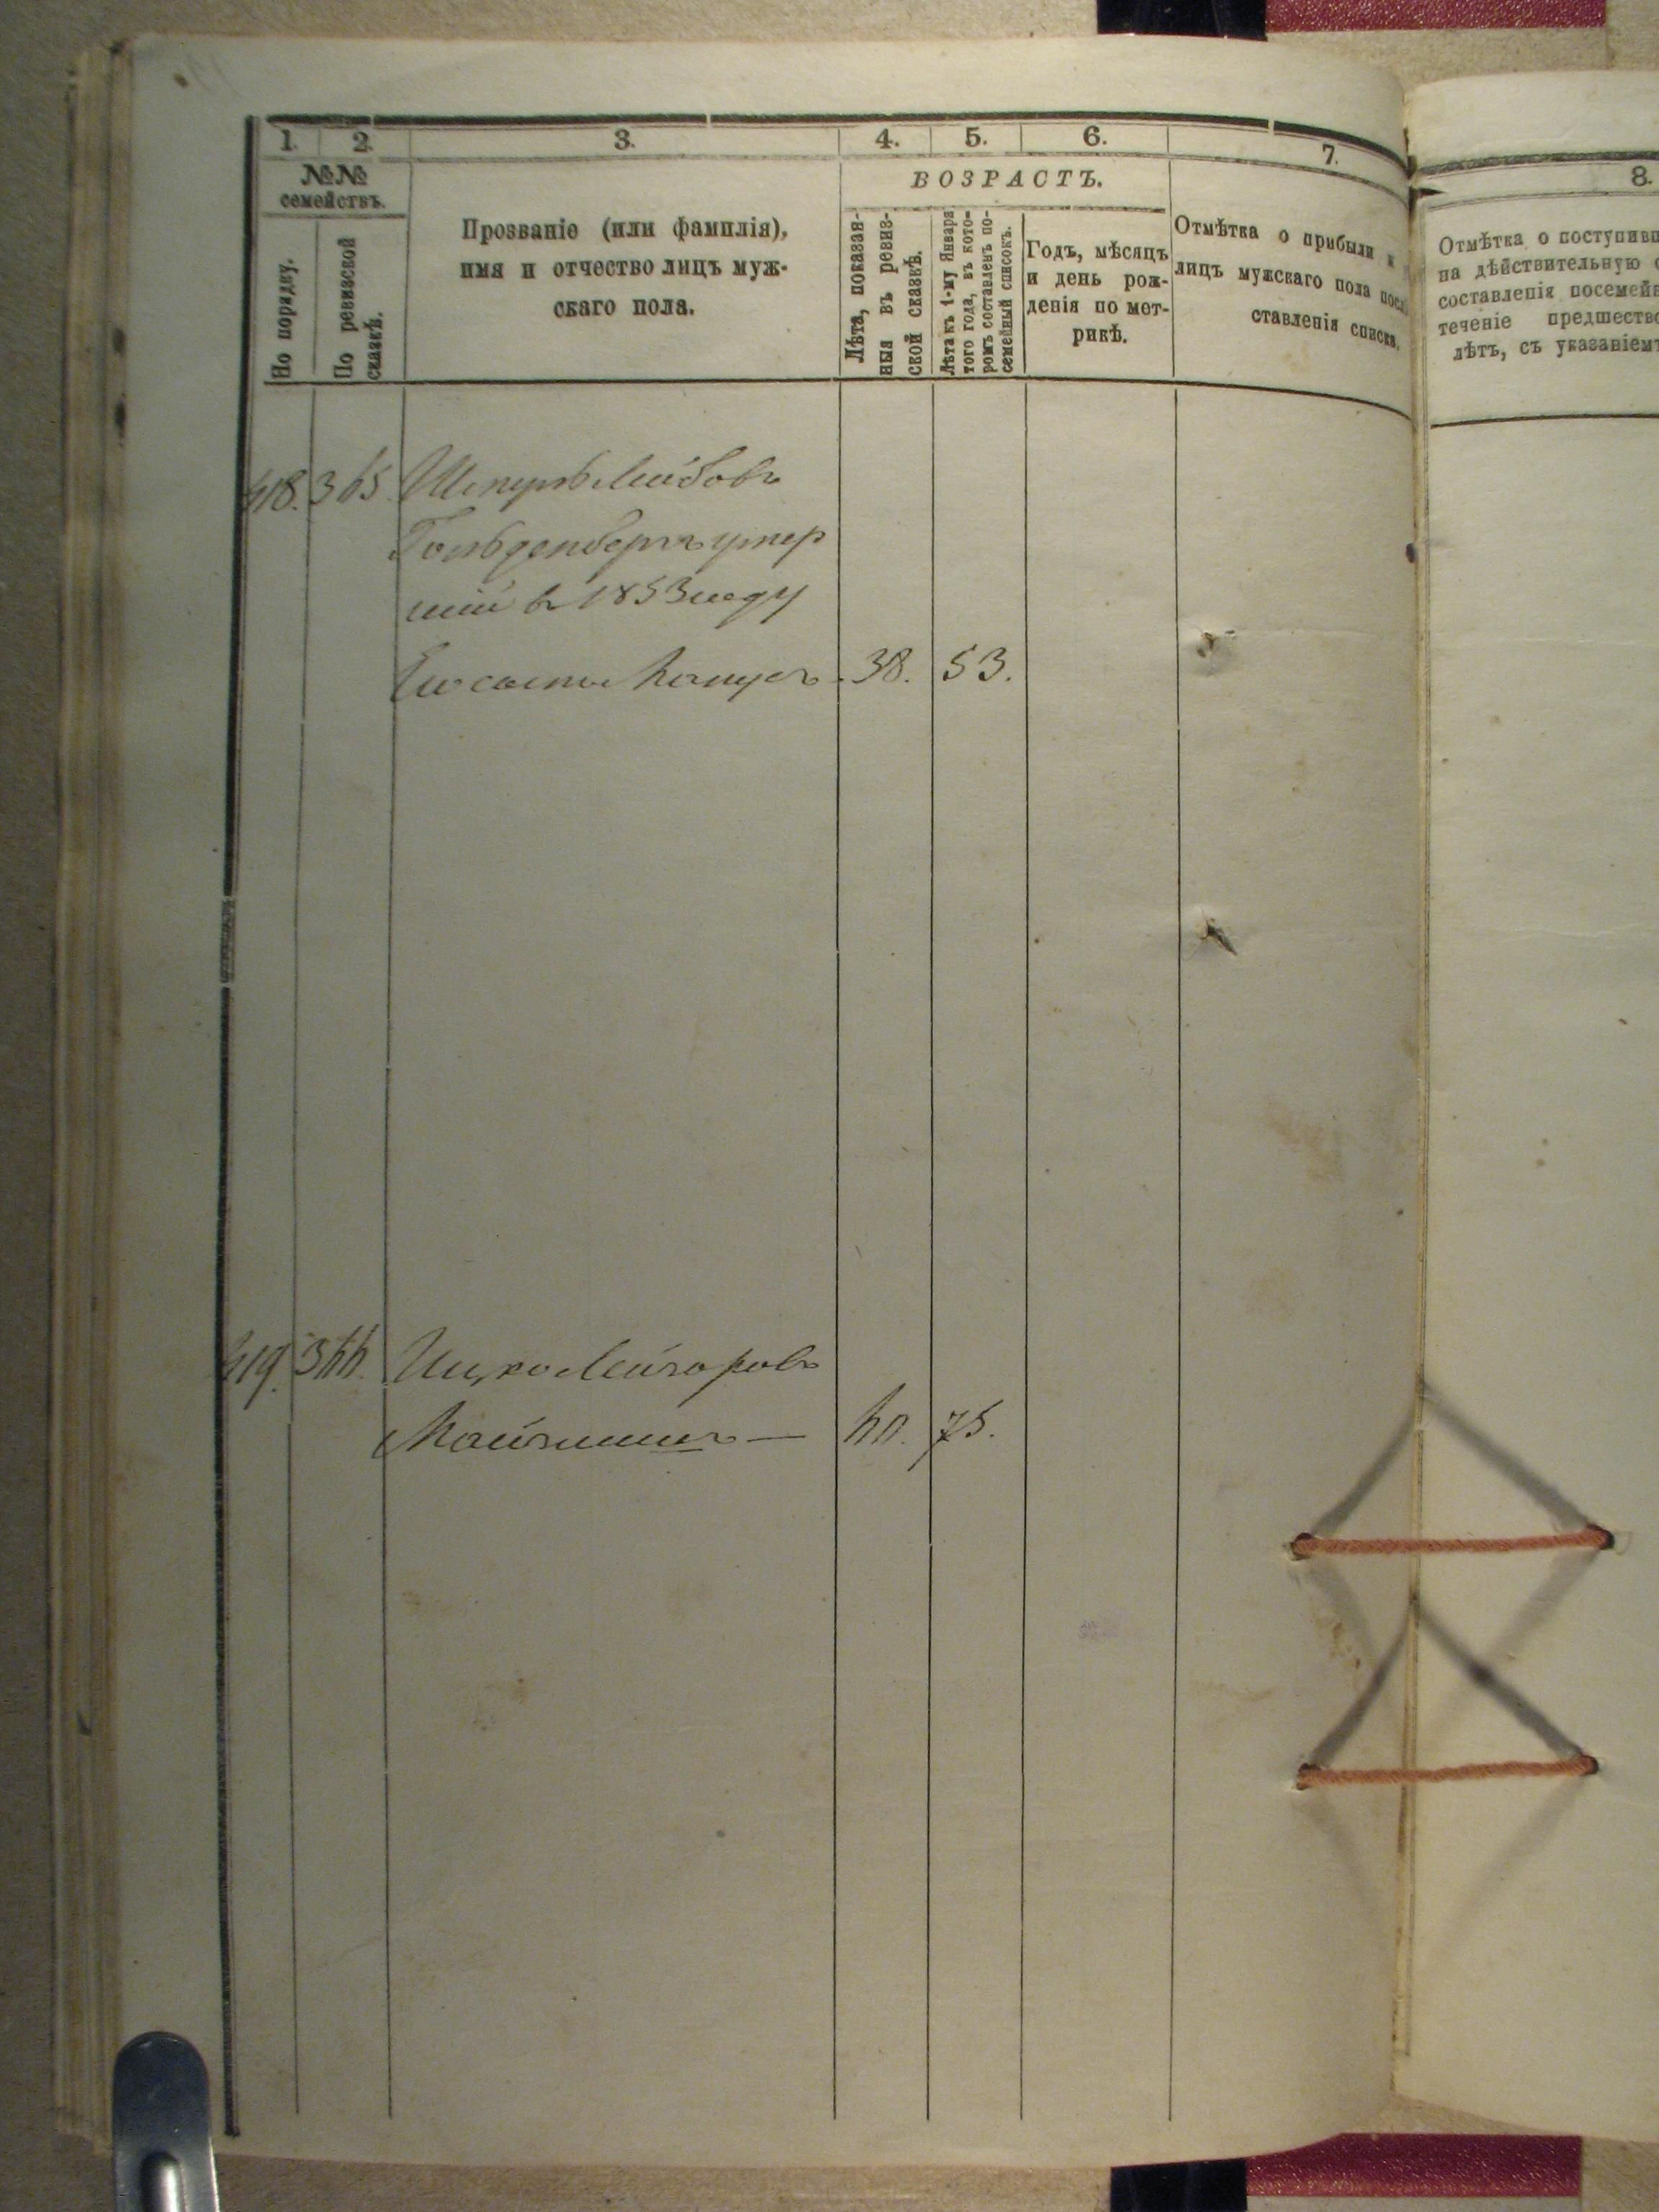 1. 2. 3. 4. 5. 6. 7.
№№ семействъ.
По порядку.
По ревизской сказкѣ.
Прозваніе (или фамилія),
имя и отчество лицъ муж-
скаго пола.
ВОЗРАСТЪ.
Лѣта, показан-
ныя въ ревиз-
ской сказкѣ.
Лѣта къ 1-му Января
того года, въ кото-
ромъ составленъ по-
семейный списокъ.
Годъ, мѣсяцъ
и день рож-
денія по мет-
рикѣ.
Отмѣтка о прибыли и
лицъ мужскаго пола посл
ставленія списка.
418. 365. Лейбовъ
Гольденбергъ умер
шій въ 1853 году
Его сынъ 38. 53.
419. 366. Ицко
75.
8.
Отмѣтка о поступивш
на дѣйствительную с
составленія посемейн
теченіе предшество
лѣтъ, съ указаніемъ